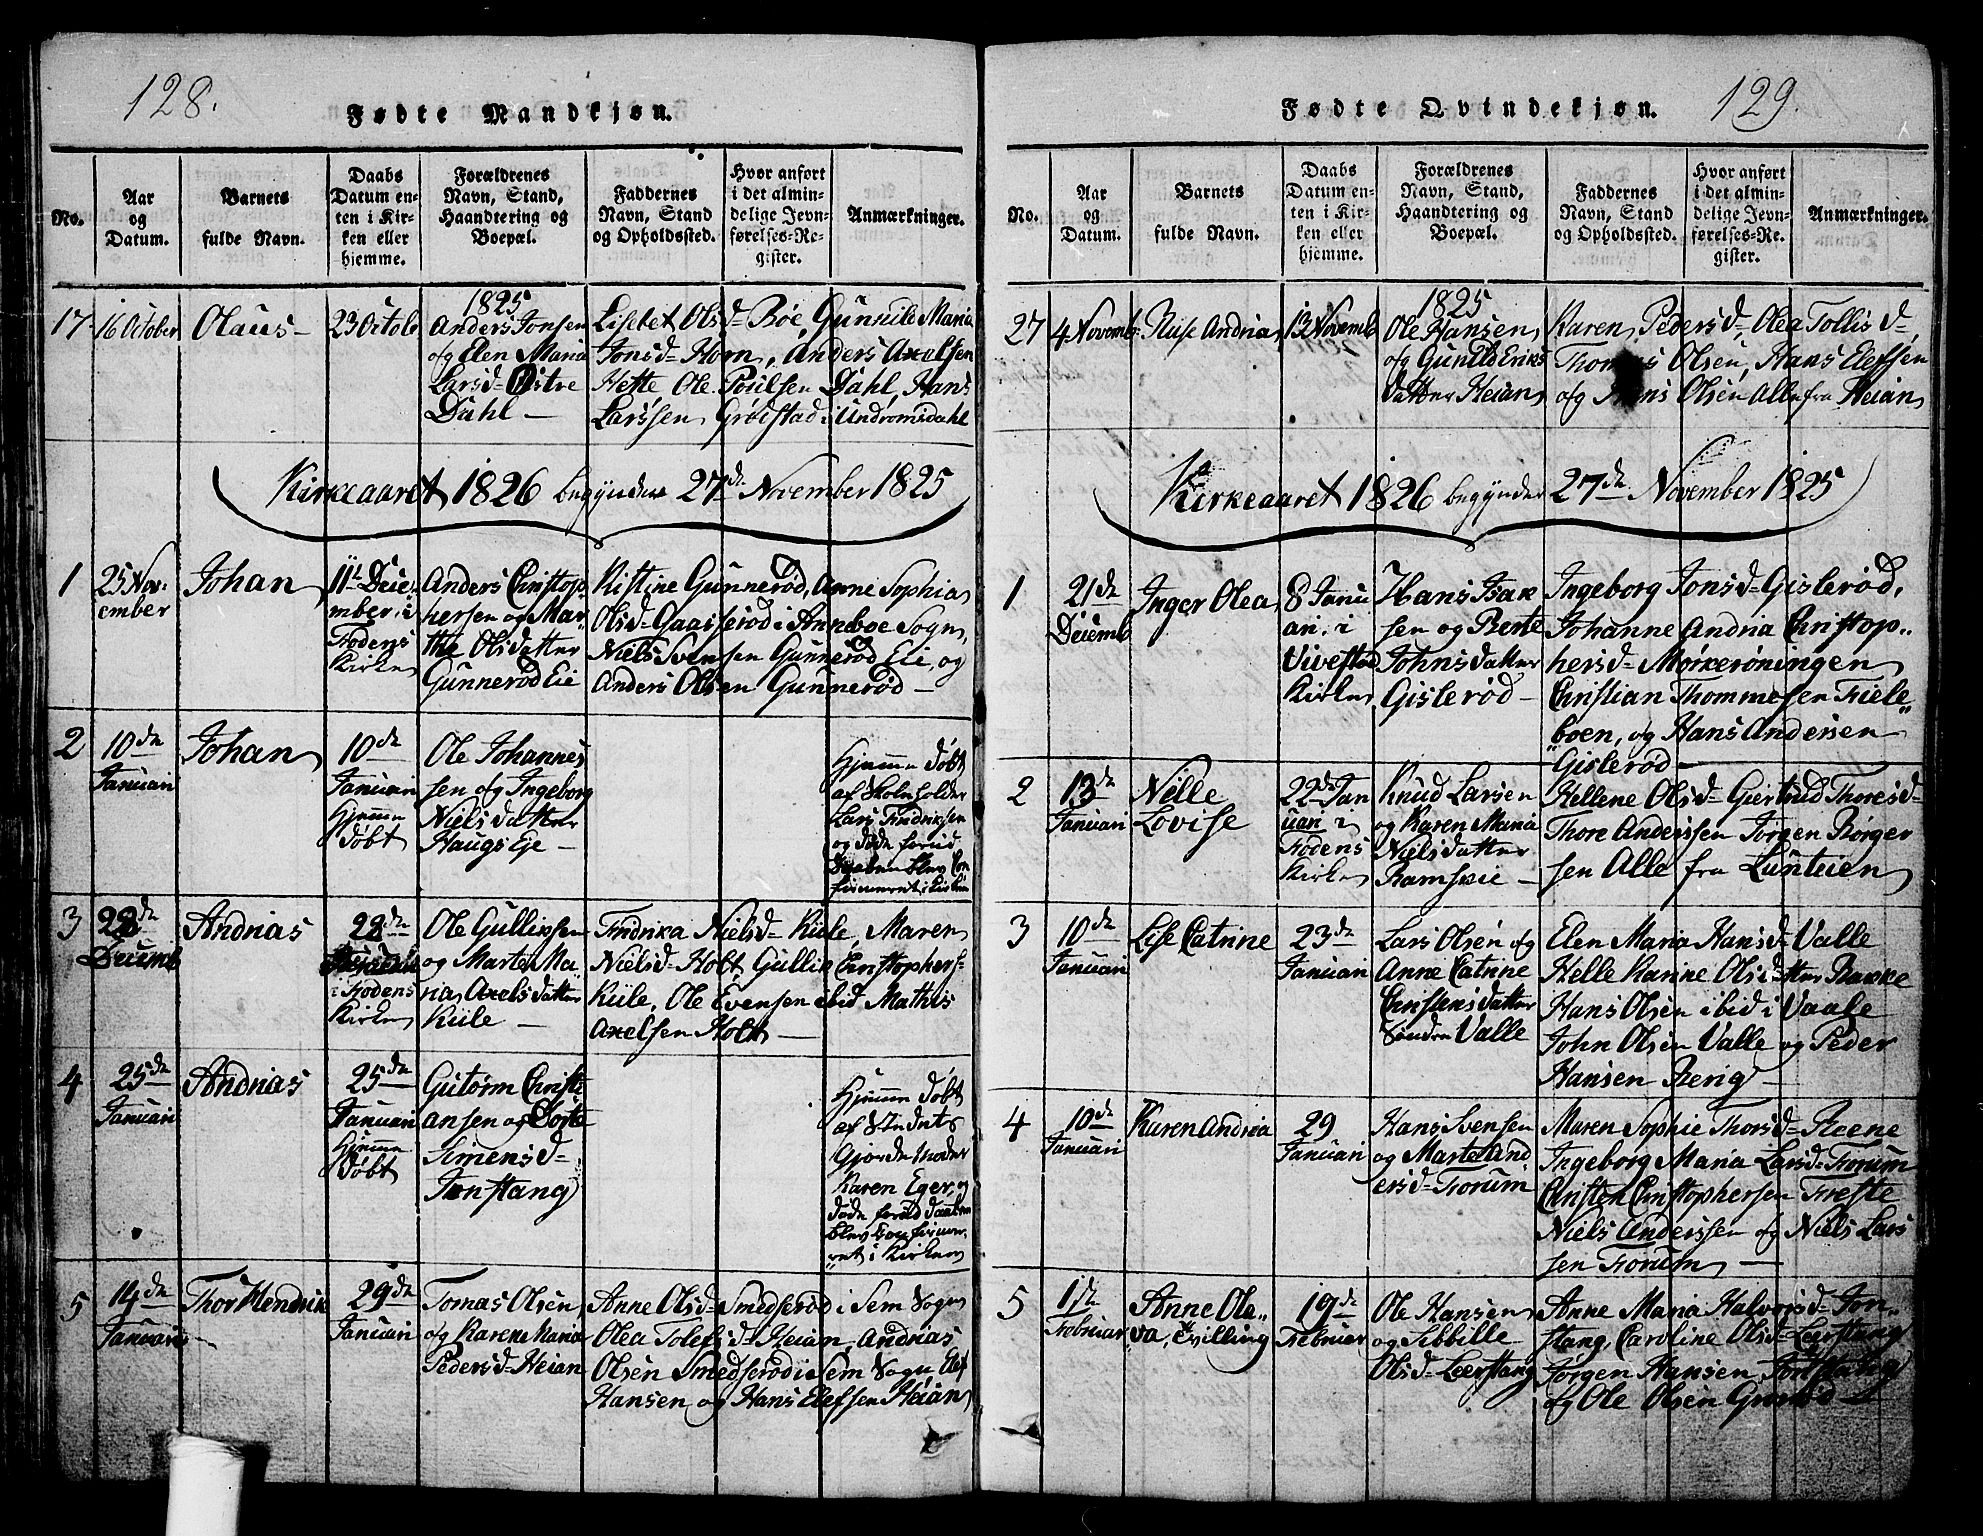 128.
Fødte Mandkjøn.
No.
Aar
og
Datum.
Barnets
fulde Navn.
Daabs
Datum en-
ten i Kir-
ken eller
hjemme.
Forældrenes
Navn, Stand,
Haandtering og
Boepæl.
Faddernes
Navn, Stand
og Opholdssted.
Hvor anført
i det almin-
delige Jevn-
førelses-Re-
gister.
Anmærkninger.
17
16 October
Olaus
23 Octob
1825
Anders Jonsen
og Elen Maria
Larsd- Østre
Dahl -
Lisebet Olsd- Bøe, Gunnild Maria
Jonsd- Horn, Anders Axelsen
Hette Ole Poulsen Dahl, Hans
Larssen Grødstad i Undromsdahl
Kirkeaaret 1826 begynder 27de November 1825
1
25 Nov-
ember
Johan
11te Decem-
ember i
Fodens
Kirke
Anders Christop-
hersen og Mar-
the Olsdatter
Gunnerød Eie
Kistine Gunnerød, Anne Sophia
Olsd- Gaasserød i Anneboe Sogn,
Niels Svensen Gunnerød Eie, og
Anders Olsen Gunnerød -
2
10de
Januari
Johan
10de
Januari
Hjemme
Døbt
Ole Johannes
sen og Ingeborg
Nielsdatter
Haugs Eje -
Hjemme Døbt
af Skoleholder
Lars Fredriksen
og døde forud
Daaben blev Con
firmeret i Kirken
3
Decemb
Andrias
28de
i Fodens
Kirke
Ole Gulliksen
og Marte Ma-
ria Axelsdatter
Kiile -
Fredrika Nielsd- Kiile, Maren
Nielsd- Holt, Gullik Christophers-
Kiile, Ole Evensen ibid Mathis
Axelsen Holt -
4
25de
Januari
Andrias
25de
Januari
Hjemme
Døbt
Gutorm Christi-
ansen og Dorte
Simensd-
Jonstang
Hjemme Døbt
af
Gjorde moder
Karen Eger, og
døde forud daaben
blev Confirme-
ret i Kirken
5
14de
Januari
Thor Hendrik
29de
Januari
Tomas Olsen
og Karene Maria
Pedersd- Heian
Anne Olsd- Smedserød i Sem Sogn
Olea Tolefsd- Heian, Andrias
Olsen Smedserød i Sem Sogn, Elef
Hansen og Hans Elefsen Heian
129.
Fødte Qvindekjøn.
No.
Aar
og
Datum.
Barnets
fulde Navn.
Daabs
Datum en-
ten i Kir-
ken eller
hjemme.
Forældrenes
Navn, Stand,
Haandtering og
Boepæl.
Faddernes
Navn, Stand
og Opholdssted.
Hvor anført
i det almin-
delige Jevn-
førelses-Re-
gister.
Anmærkninger.
27
4 Novemb
Andria
13 Novemb
1825
Ole Hansen
og Gunild Eriks
datter Heian
Karen Pedersd- Olea Tollisd-
Thomas Olsen, Hans Elefsen
og Hans Olsen Alle fra Heian
Kirkeaaret 1826 begynder 27de November 1825
1
21de
Decemb
Inger Olea
8 Janu
ari i
Vivestad
Kirke
Hans Isak
sen og Berte
Johnsdatter
Gislerød -
Ingeborg Jonsd- Gislerød,
Johanne Andria Christop-
hersd- Mørkerøningen
Christian Thommesen Fiele-
boen, og Hans Andersen
Gislerød -
2
13de
Januari
Nille
Lovise
22de Jan
uari i
Fodens
Kirke
Knud Larsen
og Karen Maria
Nielsdatter
Ramseie -
Hellene Olsd- Giertrud Thoresd-
Thore Anderssen Jørgen Børger
sen Alle fra Lunteien
3
10de
Januari
Lise Catrine
23de
Januari
Lars Olsen og
Anne Catrine
Christensdatter
Søndre Valle
Elen Maria Hansd- Valle
Helle Karine Olsdatter Bakke
Hans Olsen ibid i Vaale
John Olsen Valle og Peder
Hansen Rerig -
4
10de
Januari
Karen Andrea
29
Januari
Hans Svensen
og Marte And
ersd- Forum
Maren Sophie Thorsd- Roene
Ingeborg Maria Larsd- Forum
Christen Christophersen Freste
Niels Anderssen og Niels Lars
sen Forum -
5
1de
Februar
Anne Ole-
va, Tvilling
19de
Februar
Ole Hansen
og Sibbille
Olsd- Leerstang
Anne Maria Halvorsd- Jon-
stang, Caroline Olsd- Leerstang
Jørgen Hansen, Jonstang
og Ole Olsen